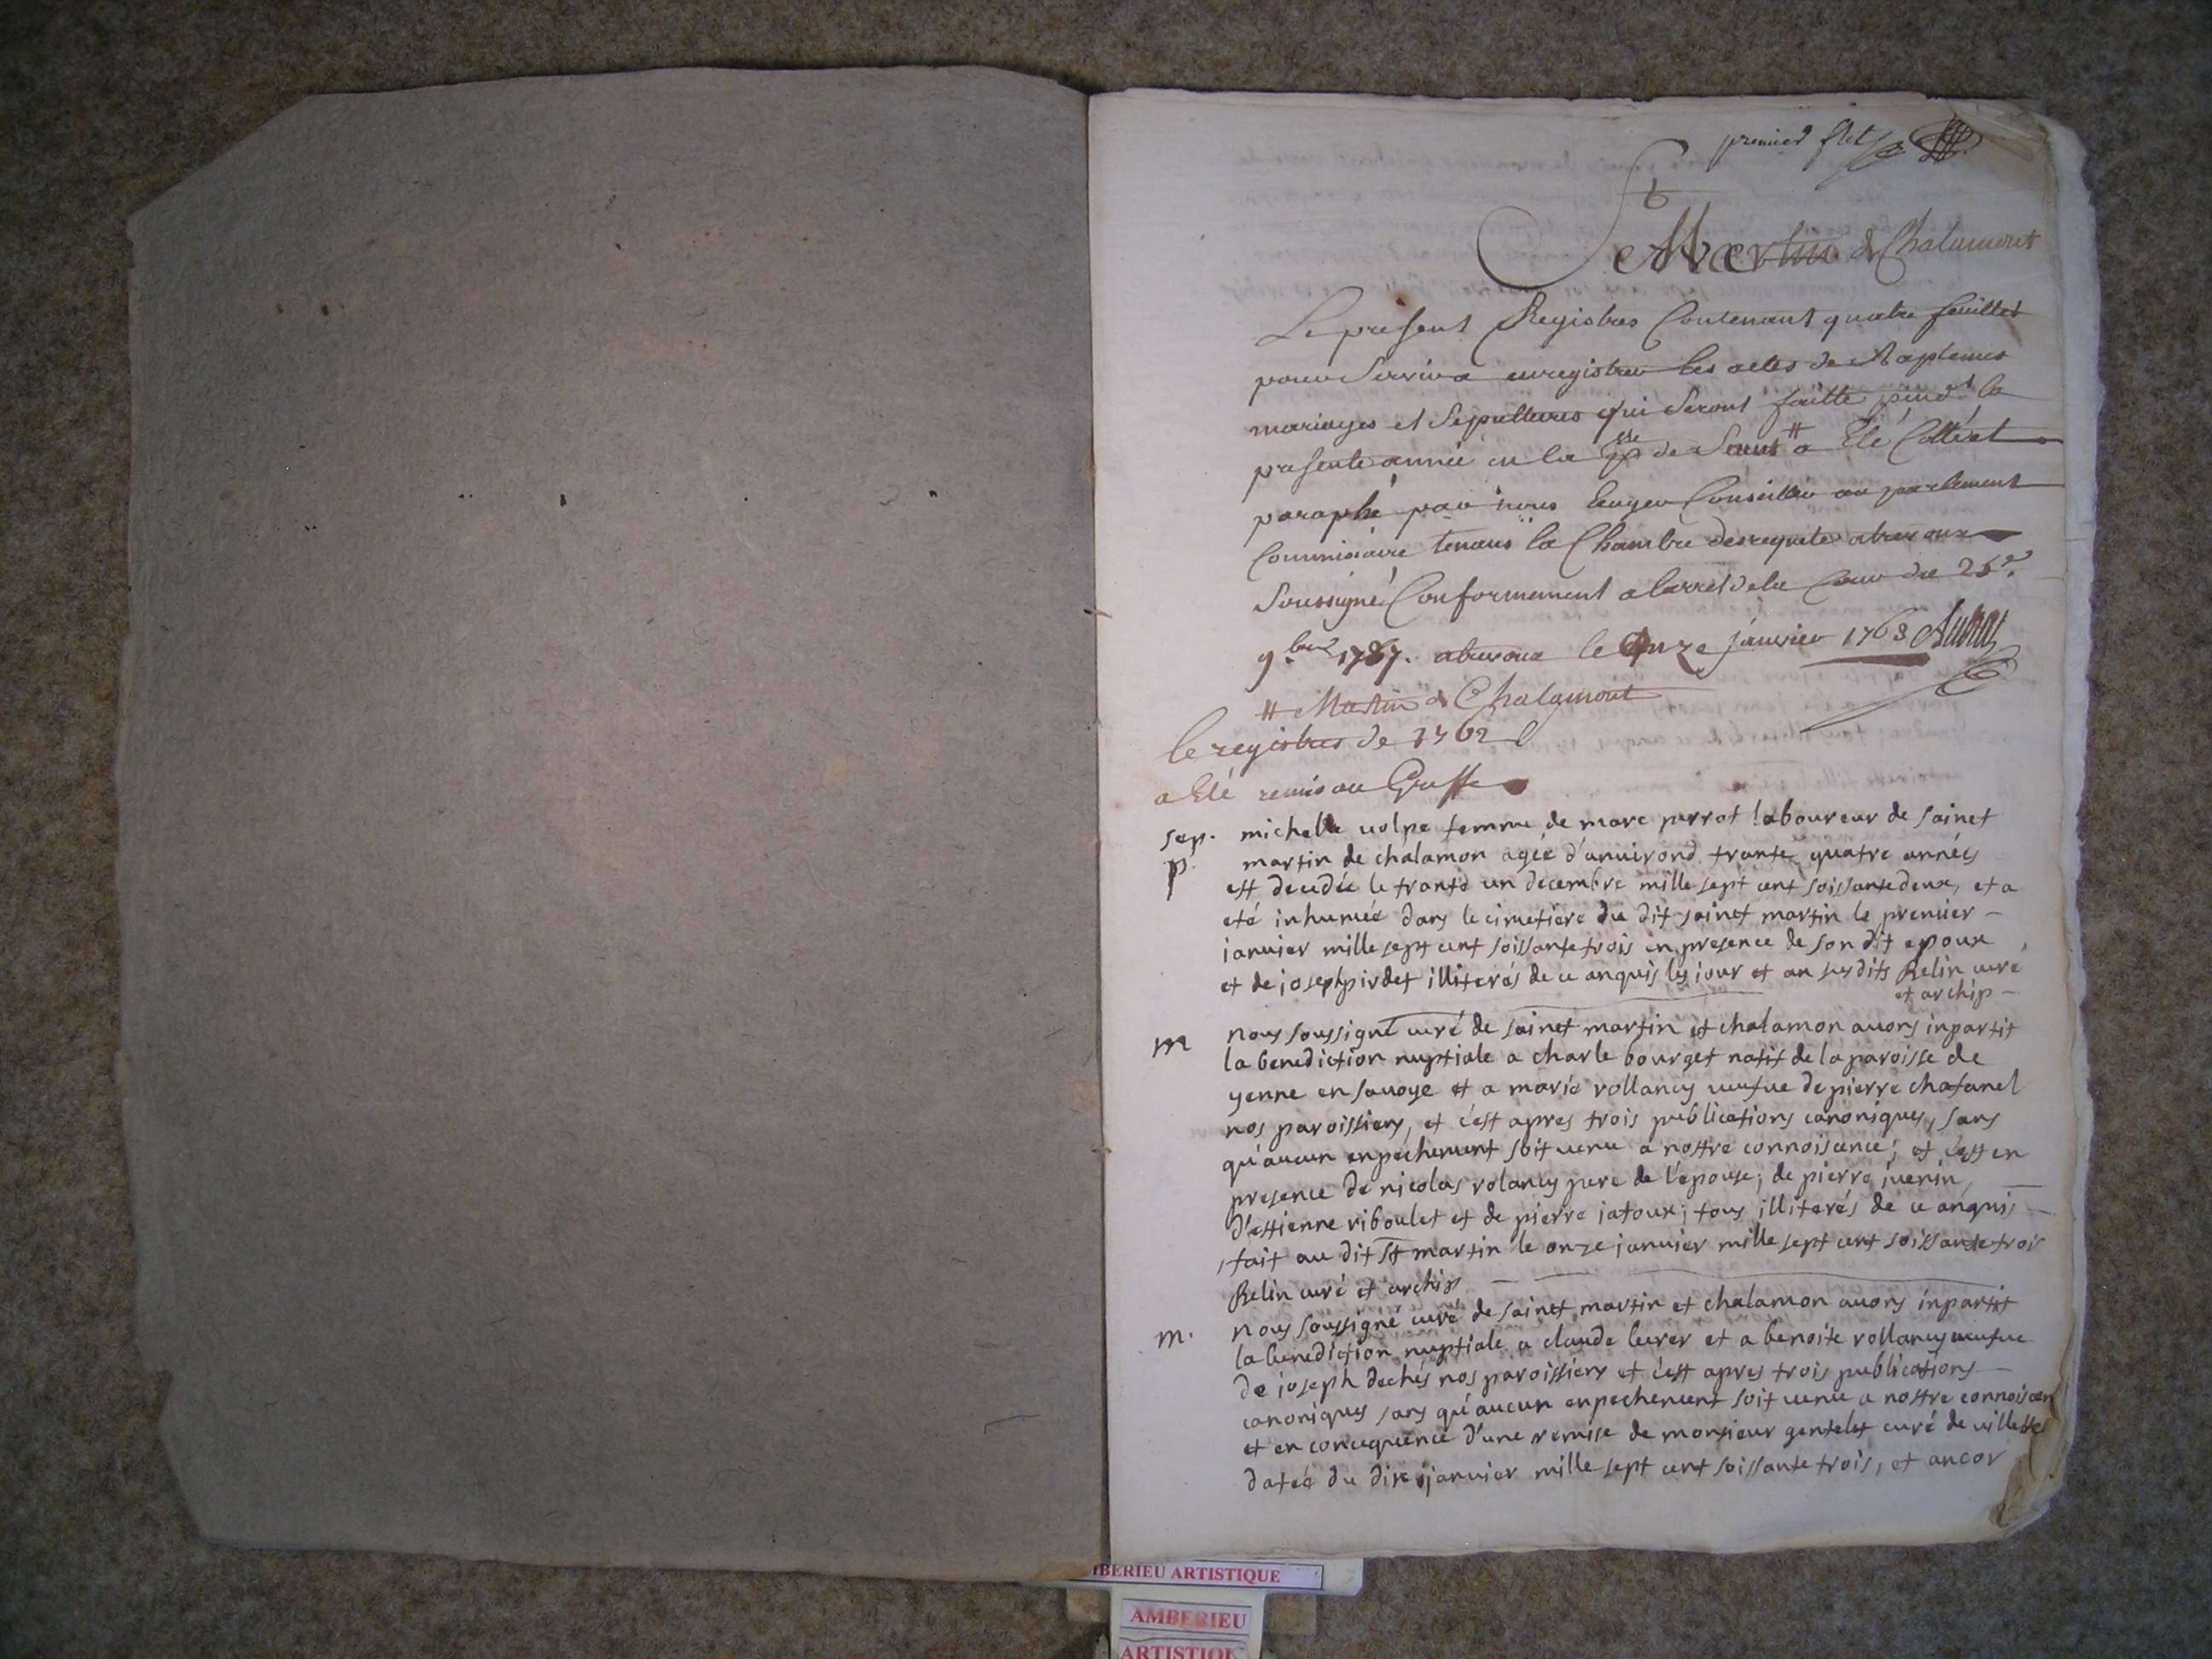 premier flet
St Martin de Chalamont
Le present Registres Contenant quatre feuillet
pour Servir a enregistrer les actes de Baptemes
mariages et Sepultures qui Seront faitte pend.t la
presente année en la p.sse de Saint # a Eté Cotté et
paraphé par nous Conseiller au parlement
Commissaire tenant la Chambre des requetes a trevoux
Soussigné Conformement a larret de la Cour du 25e.
9.bre 1737. a trevoux le Onze janvier 1763 Aubret
# Martin de Chalamont
le registres de 1762
a Eté remis au Greffe
sep. michelle volpe femme de marc perrot laboureur de sainct
p. martin de chalamon agée d'anvirond trante quatre années
est decedée le trante un decembre mille sept cent soissante deux, et a
eté inhumée dans le cimetiere du dit sainct martin le premier –
ianvier mille sept cent soissante trois en presence de son dit epoux
et de ioseph pirdet illiterés de ce anquis les iour et an susdits Relin curé
et archip –
m nous soussigné curé de sainct martin et chalamon avons inpartit
la benediction nuptiale a charle bourget natif de la paroisse de
yenne en savoye et a marie vollancy veufve de pierre chatanel
nos paroissiens, et c'est apres trois publications canoniques, sans
qu'aucun enpechement soit venu a nostre connoisence; et c'est en
presence de nicolas volancy pere de l'epouse; de pierre iuenin,
d'estienne riboulet et de pierre iatoux; tous illiterés de ce anquis –
fait au dit st martin le onze ianvier mille sept cent soissante trois
Relin curé et archip
m. nous soussigné curé de sainct martin et chalamon avons inpartit
la benediction nuptiale a claude leurer et a benoite vollancy veufve
de ioseph dechés nos paroissiens et c'est apres trois publications –
canoniques sans qu'aucun enpechement soit venu a nostre connoisen
et en concequence d'une remise de monsieur gentelet curé de villette
datée du dix janvier mille sept cent soissante trois, et ancor
IBERIEU ARTISTIQUE
AMBERIEU
ARTISTIQU